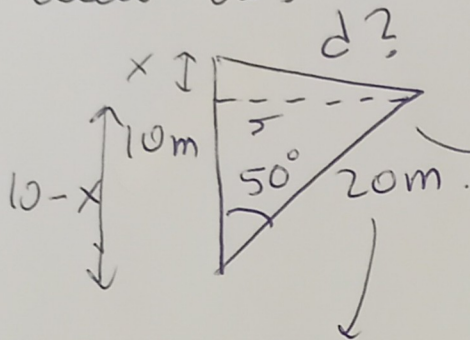 d?
x
10m
5
50°
20m.
10-x